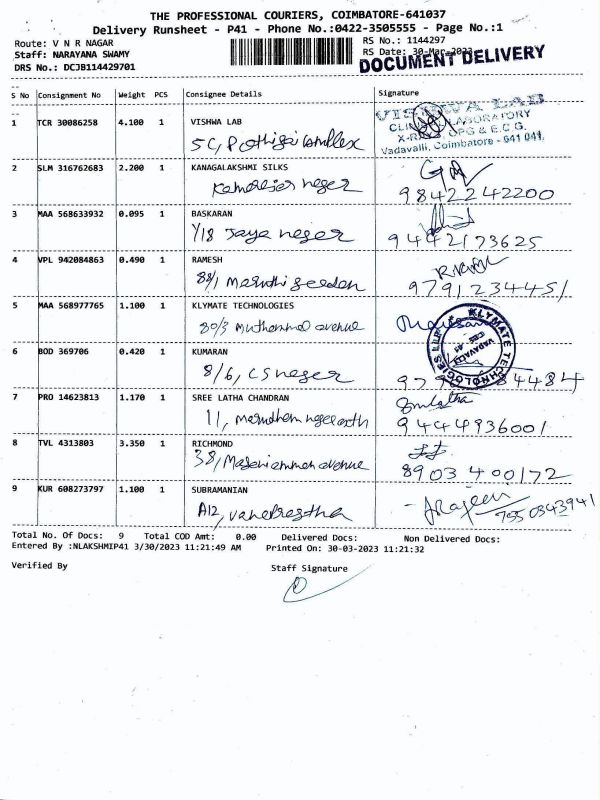 THE PROFESSIONAL COURIERS, COIMBATORE-641037
Delivery Runsheet - P41 - Phone No.:0422-3505555 - Page No.:1
Route: V N R NAGAR
Staff: NARAYANA SWAMY
DRS No.: DCJB114429701
RS No.: 1144297
RS Date: 30-Mar-2023
DOCUMENT DELIVERY
S No Consignment No Weight PCS Consignee Details Signature
1 TCR 30086258 4.100 1 VISHWA LAB
5C, Pothigai Complex
VISHWA LAB
CLINICAL LABORATORY
X-RAY, OPG & E.C.G.
Vadavalli, Coimbatore - 641 041.
2 SLM 316762683 2.200 1 KANAGALAKSHMI SILKS
Kamarejar neger 9842242200
3 MAA 568633932 0.095 1 BASKARAN
Y/18 Jaya neger 9442173625
4 VPL 942084863 0.490 1 RAMESH
88/1 Maruthi geeden 9791234451
5 MAA 568977765 1.100 1 KLYMATE TECHNOLOGIES
80/3 Muthammal avenue
KLYMATE TECHNOLOGIES LLP
VADAVALLI
6 BOD 369706 0.420 1 KUMARAN
8/6, CS neger 84484
7 PRO 14623813 1.170 1 SREE LATHA CHANDRAN
11, 9444936001
8 TVL 4313803 3.350 1 RICHMOND
38, Mageriamman avenue 8903400172
9 KUR 608273797 1.100 1 SUBRAMANIAN
A12, vanebrestha 7550343941
Total No. Of Docs: 9 Total COD Amt: 0.00 Delivered Docs: Non Delivered Docs:
Entered By :NLAKSHMIP41 3/30/2023 11:21:49 AM Printed On: 30-03-2023 11:21:32
Verified By Staff Signature